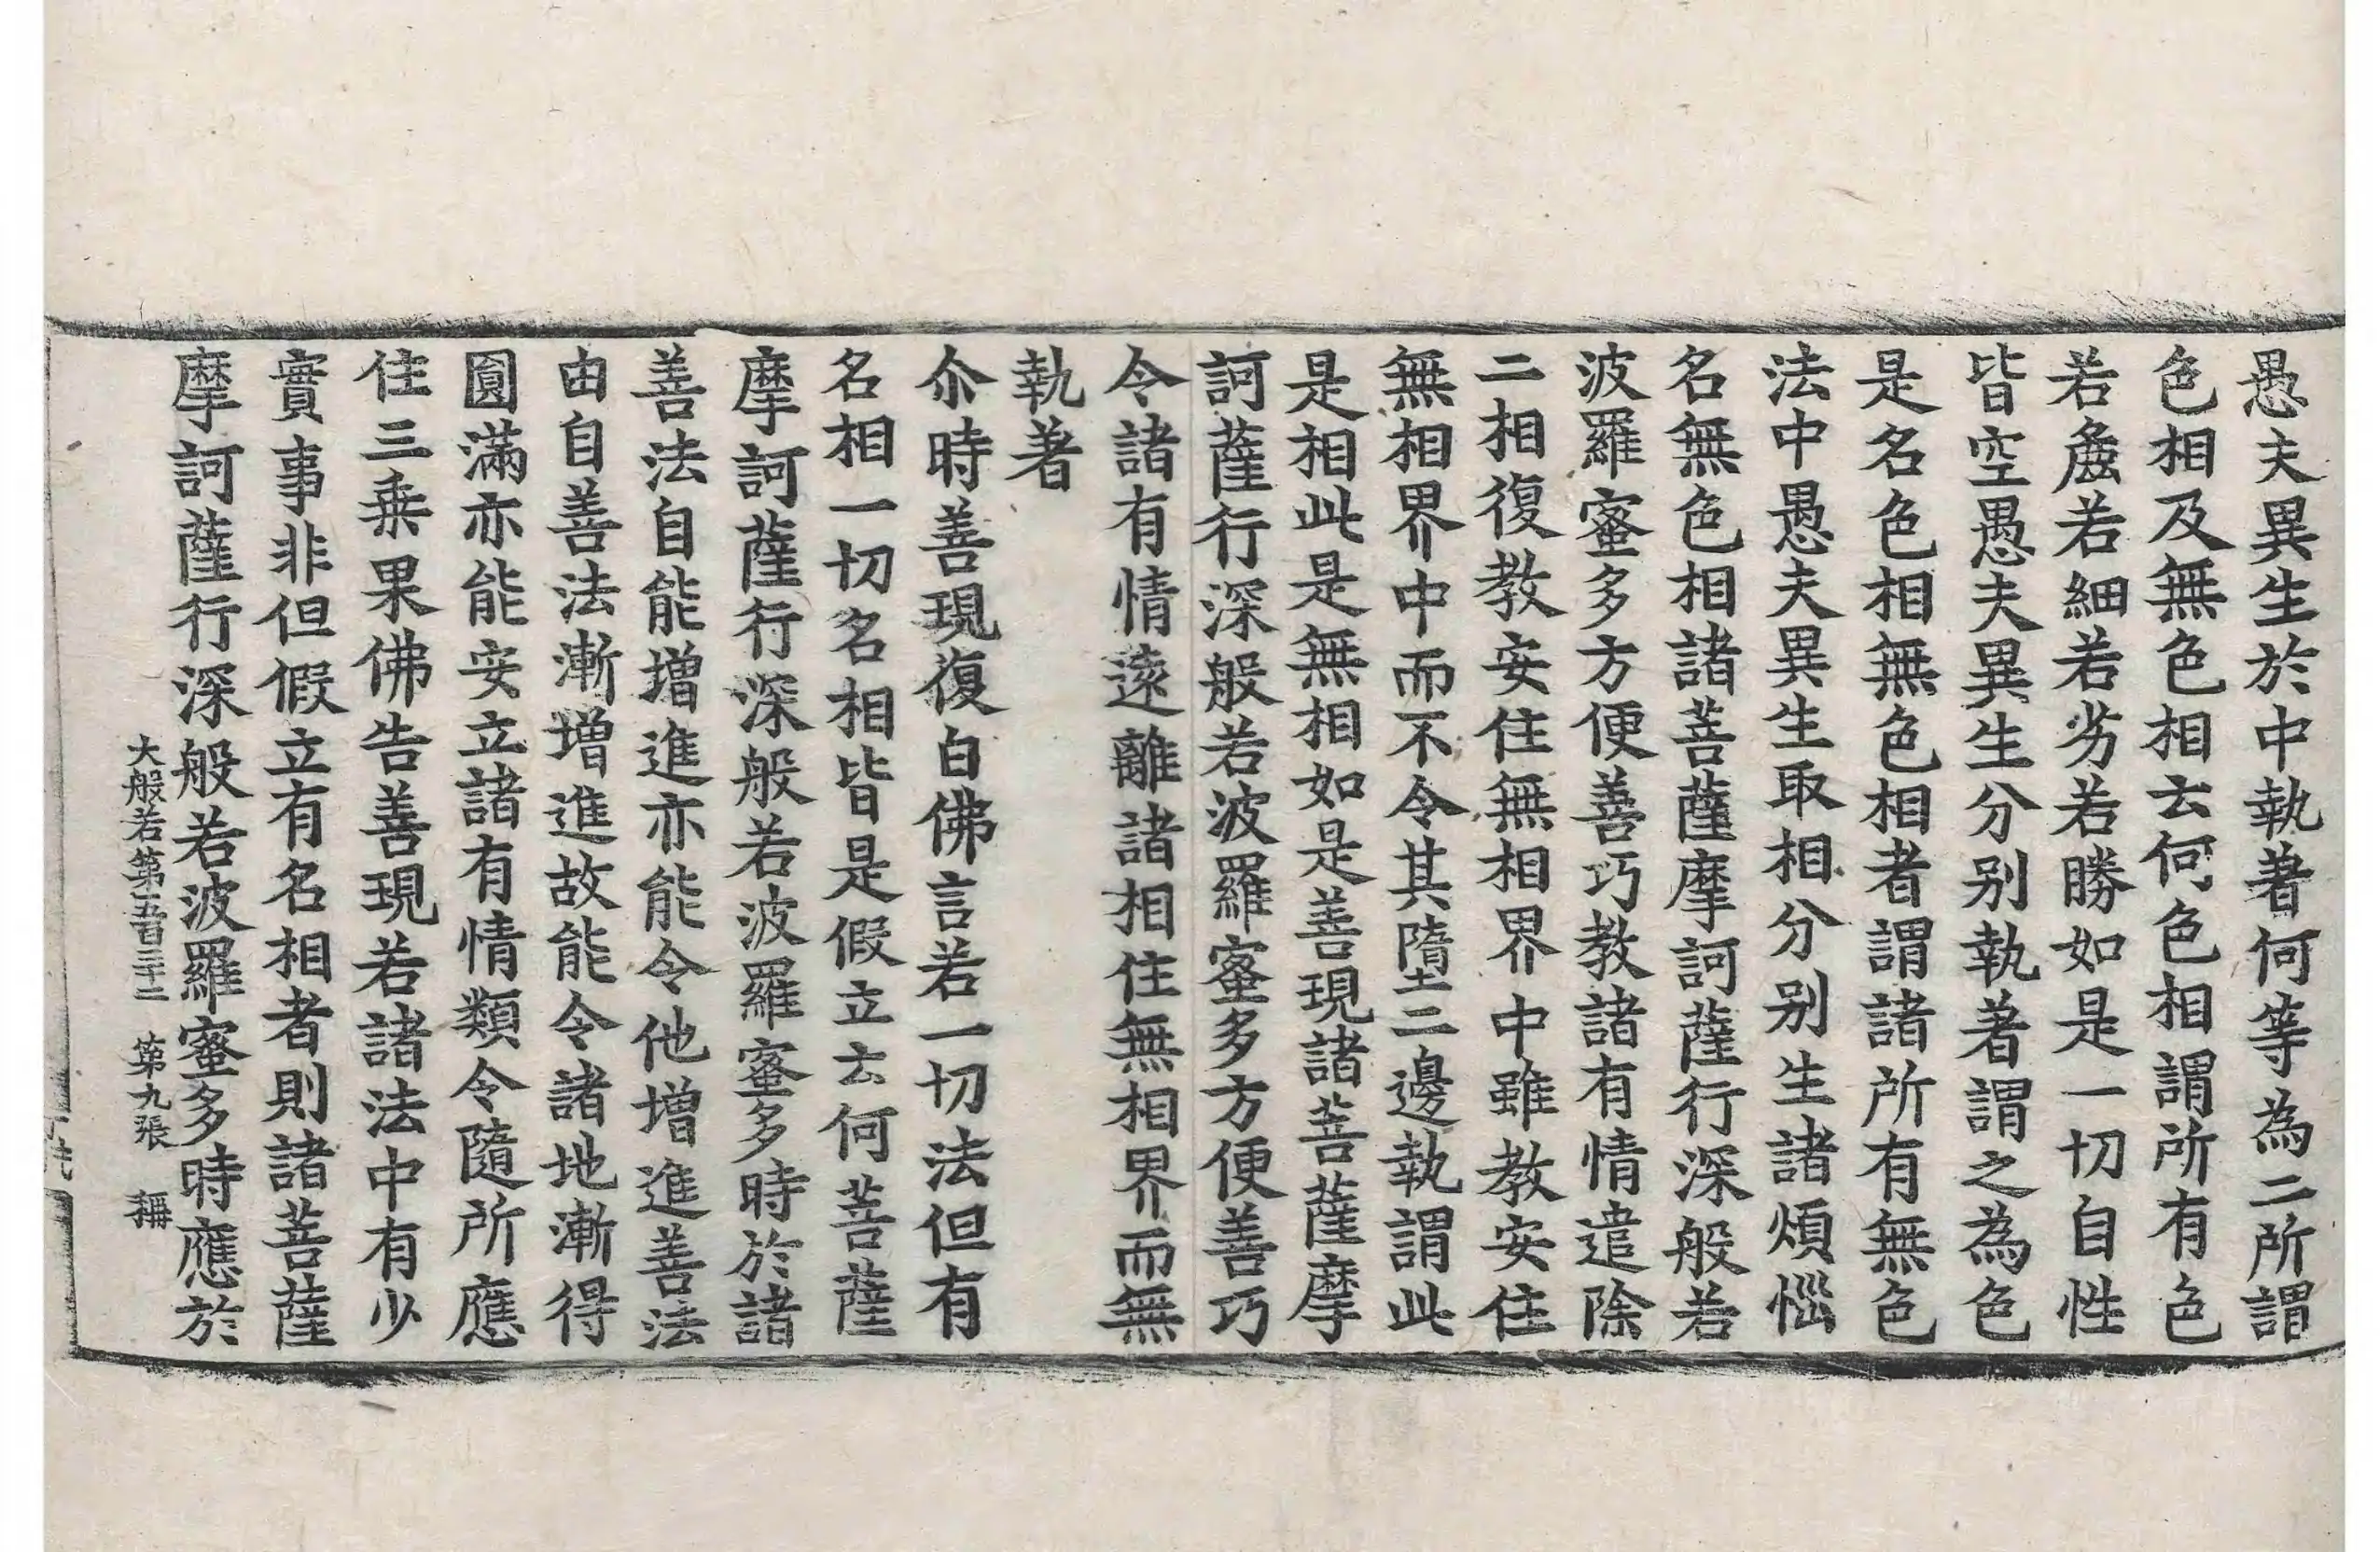 愚夫異生於中執著何等為二所謂
色相及無色相云何色相謂所有色
若麁若細若劣若勝如是一切自性
皆空愚夫異生分別執著謂之為色
是名色相無色相者謂諸所有無色
法中愚夫異生取相分別生諸煩惱
名無色相諸菩薩摩訶薩行深般若
波羅蜜多方便善巧教諸有情遣除
二相復教安住無相界中雖教安住
無相界中而不令其墮二邊執謂此
是相此是無相如是善現諸菩薩摩
訶薩行深般若波羅蜜多方便善巧
令諸有情遠離諸相住無相界而無
執著
尒時善現復白佛言若一切法但有
名相一切名相皆是假立云何菩薩
摩訶薩行深般若波羅蜜多時於諸
善法自能增進亦能令他增進善法
由自善法漸增進故能令諸地漸得
圓滿亦能安立諸有情類令隨所應
住三乘果佛告善現若諸法中有少
實事非但假立有名相者則諸菩薩
摩訶薩行深般若波羅蜜多時應於
大般若第五百三十二 第九張 稱